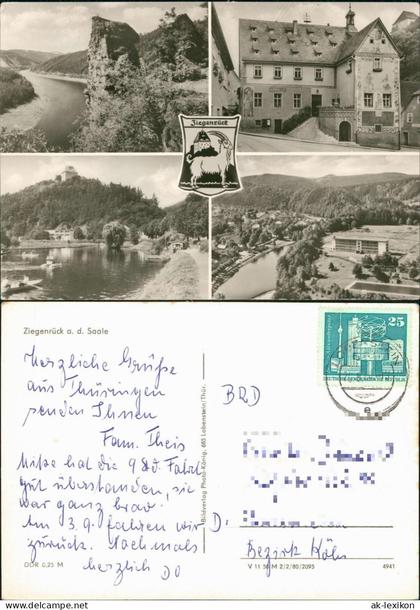 Ziegenrück
Ziegenrück a. d. Saale
Herzliche Grüße
aus Thüringen
senden Ihnen
Fam. Theis
hat die Fahrt
gut überstanden, sie
war ganz brav.
Am 3.9. fahren wir
zurück. Nochmals
herzlich
DDR 0,25 M
Bildverlag Photo-König, 685 Lobenstein/Thür.
25
DEUTSCHE DEMOKRATISCHE REPUBLIK
BRD
D:
Bezirk Köln
V 11 50 M 2/2/80/2095 4941
© ak-lexikon.com